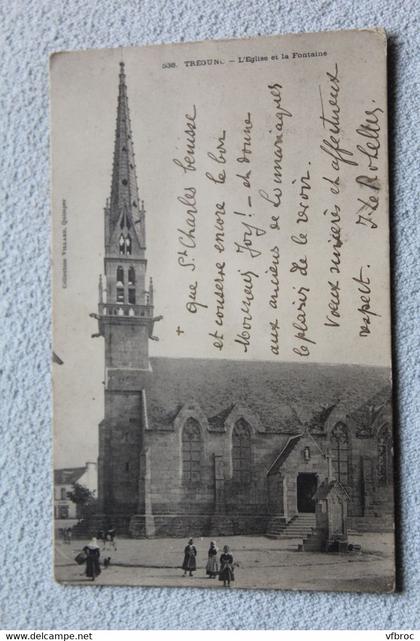 538. TRÉGUNC – L'Eglise et la Fontaine
Collection VILLARD, Quimper
+ que St Charles bénisse
et conserve encore le bon
Monsieur Joy! – et donne
aux anciens de la
le plaisir de le revoir.
Vœux sincères et affectueux
respect.
vfbroc
www.delcampe.net